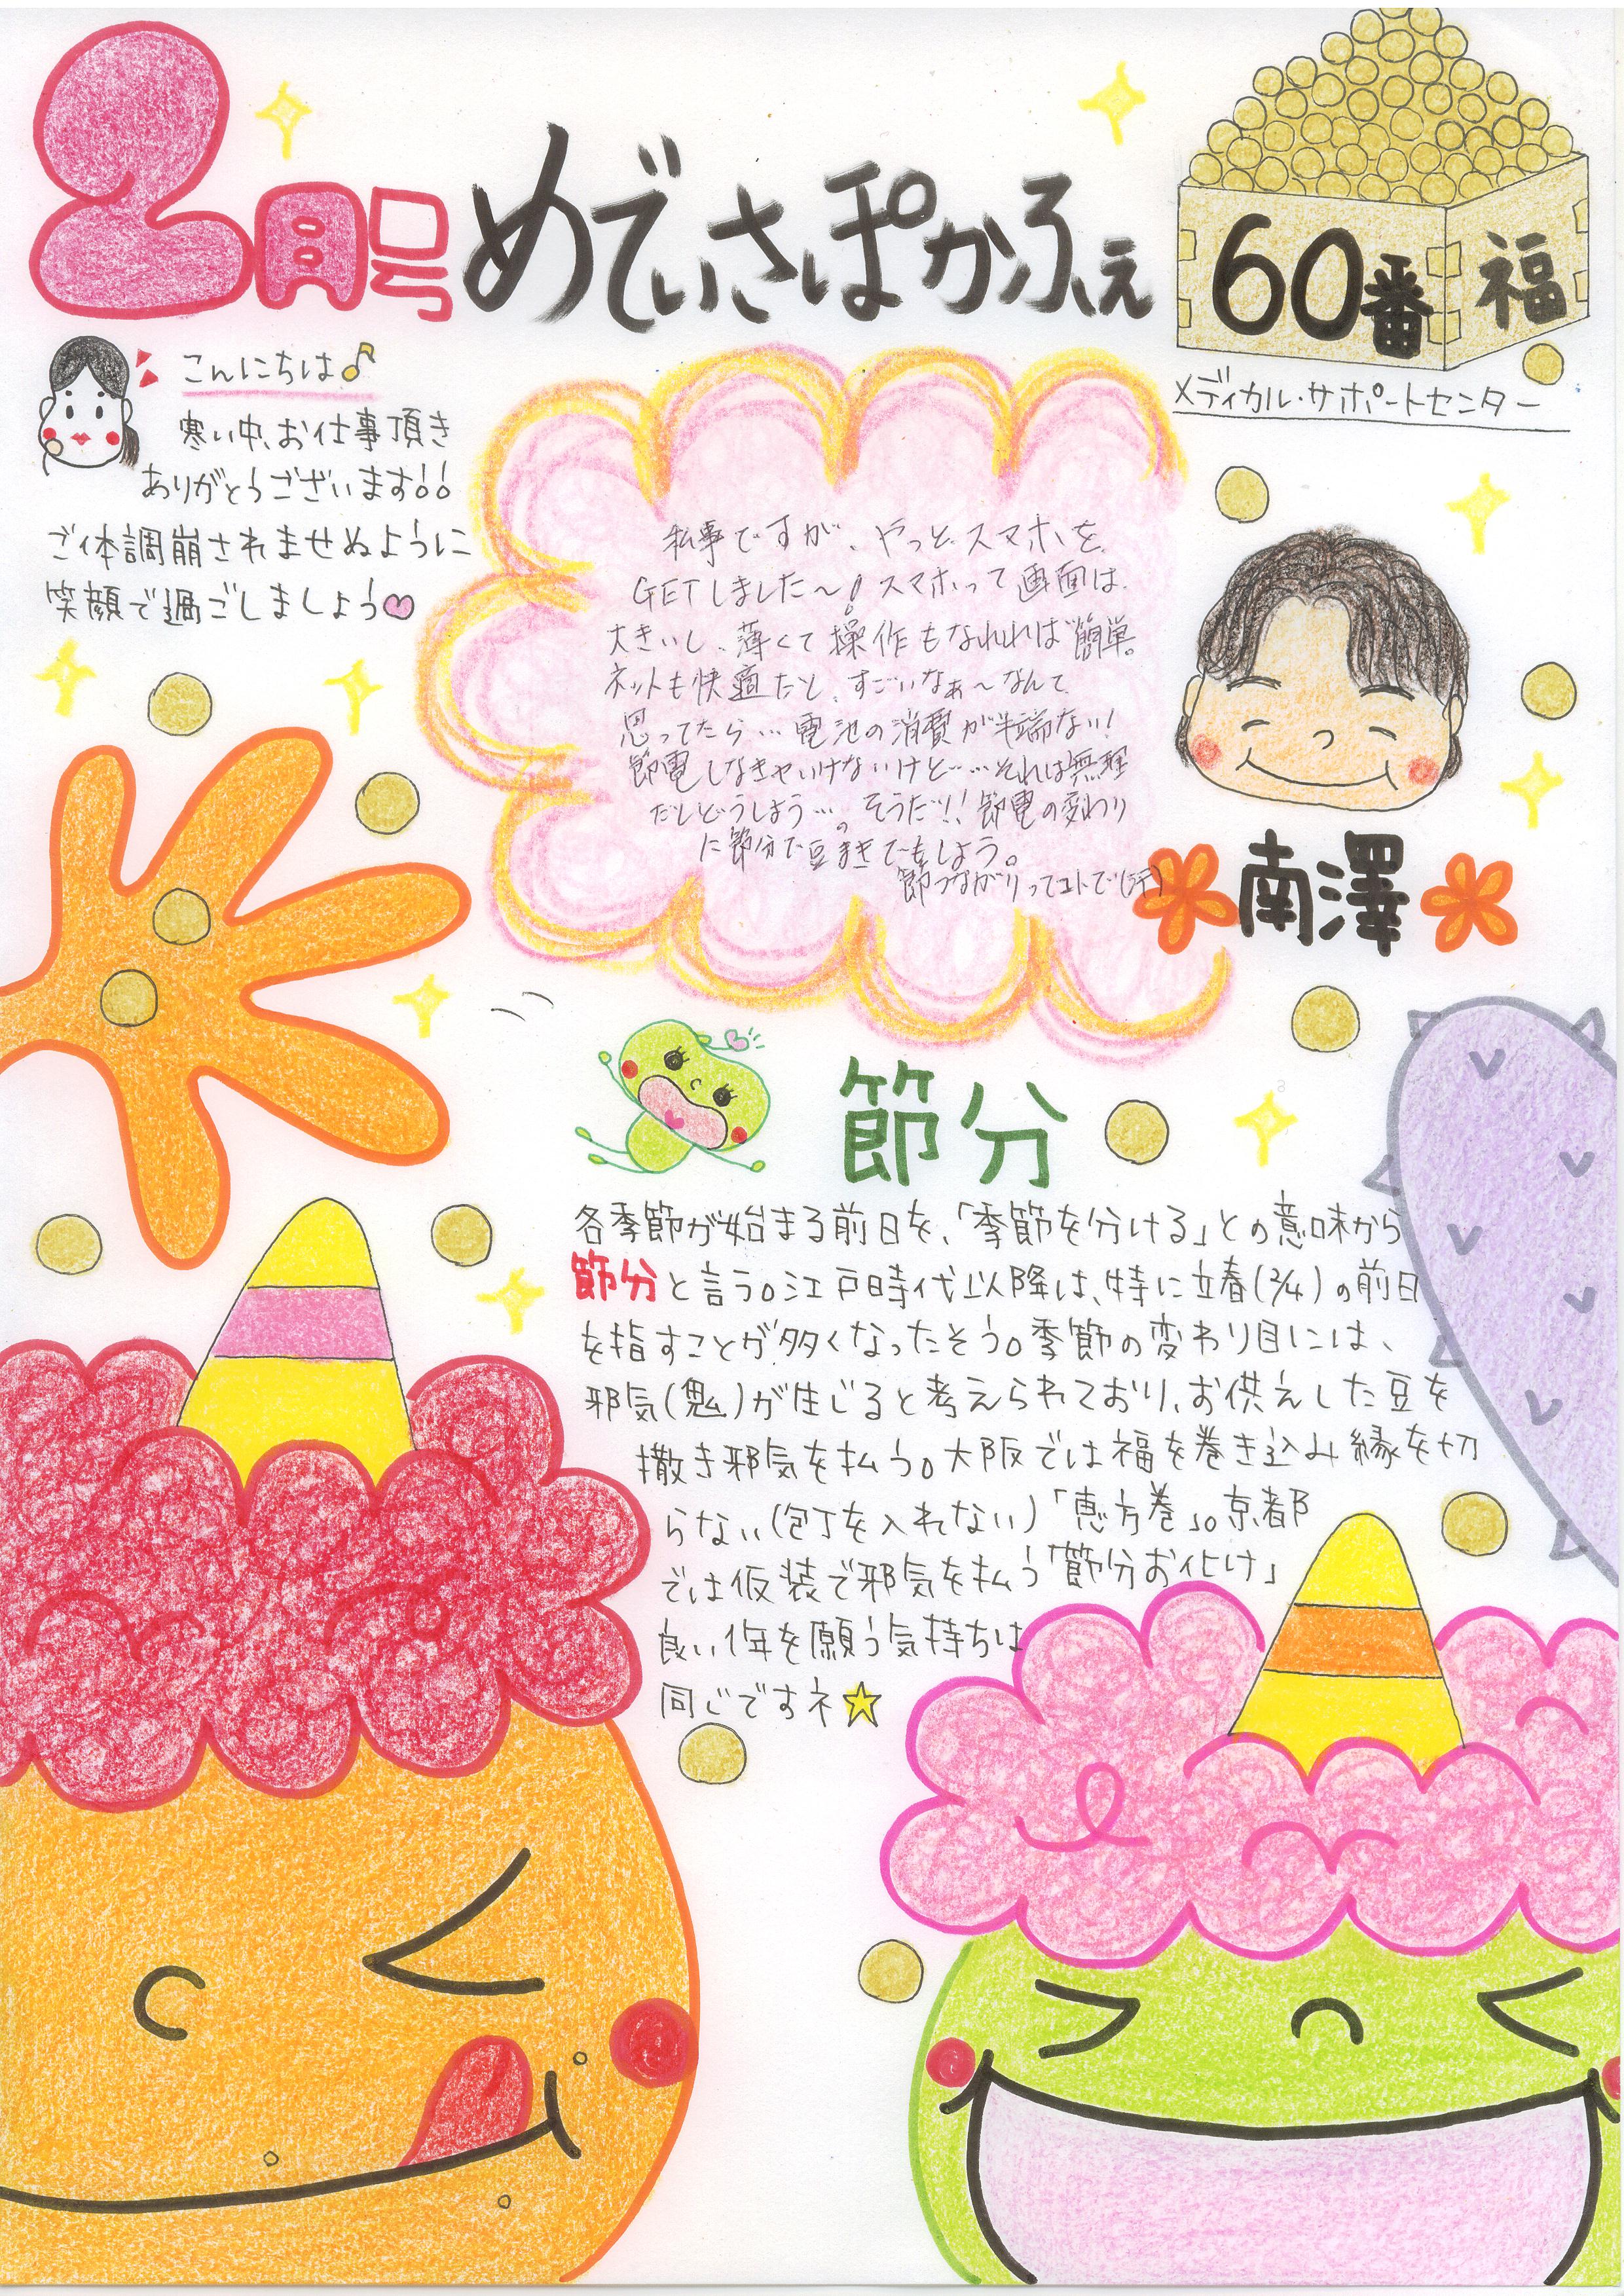 2月号 めでぃさぽかふぇ
60番
福
メディカル・サポートセンター
こんにちは♪
寒い中、お仕事頂き
ありがとうございます!!
ご体調崩されませぬように
笑顔で過ごしましょう♡
私事ですが、やっとスマホを
GETしました〜!スマホって画面は
大きいし、薄くて操作もなれれば簡単。
ネットも快適だと、すごいなぁ〜なんて
思ってたら…電池の消費が半端ない!
節電しなきゃいけないけど……それは無理
だしどうしよう…。そうだッ!!節電の変わり
に節分で豆まきでもしよう。
節つながりってコトで(汗)
南澤
節分
各季節が始まる前日を、「季節を分ける」との意味から
節分と言う。江戸時代以降は、特に立春(2/4)の前日
を指すことが多くなったそう。季節の変わり目には、
邪気(鬼)が生じると考えられており、お供えした豆を
撒き邪気を払う。大阪では福を巻き込み縁を切
らない(包丁を入れない)「恵方巻」。京都
では仮装で邪気を払う「節分お化け」
良い年を願う気持ちは
同じですネ☆